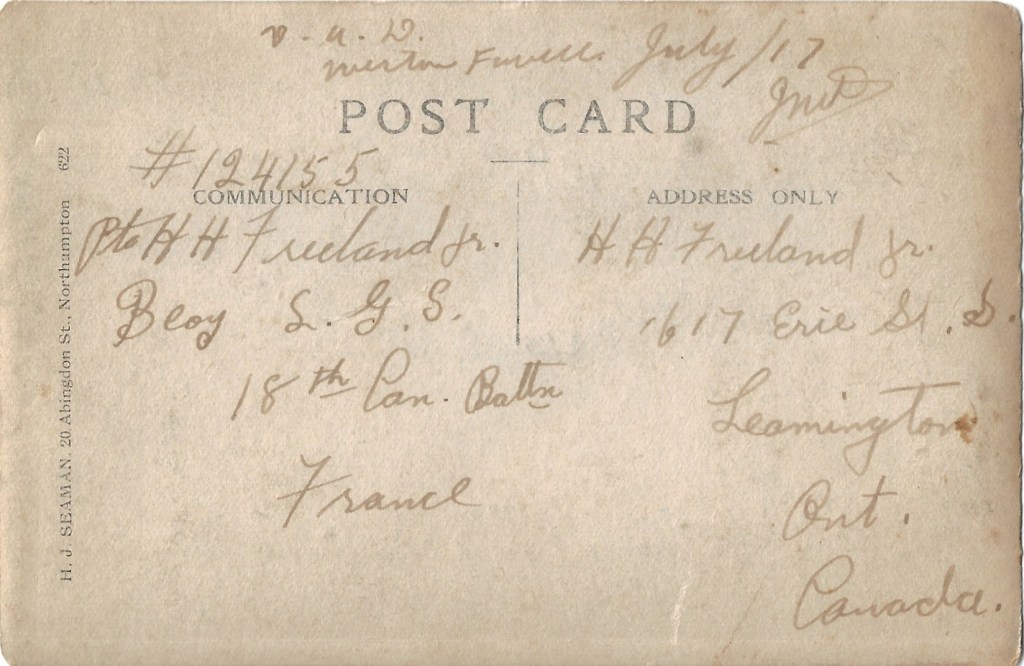 V. A. D.
Weston Favell. July/17
POST CARD
#124155
COMMUNICATION
ADDRESS ONLY
Pte H H Freeland Jr.
Bcoy L. G. S.
18th Can. Battn
France
H H Freeland Jr.
1617 Erie St. S.
Leamington
Ont.
Canada.
H. J. SEAMAN. 20 Abingdon St., Northampton 622